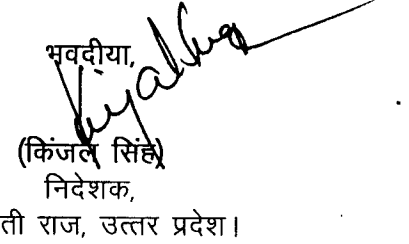 भवदीया,
(किंजल सिंह)
निदेशक,
ती राज, उत्तर प्रदेश।